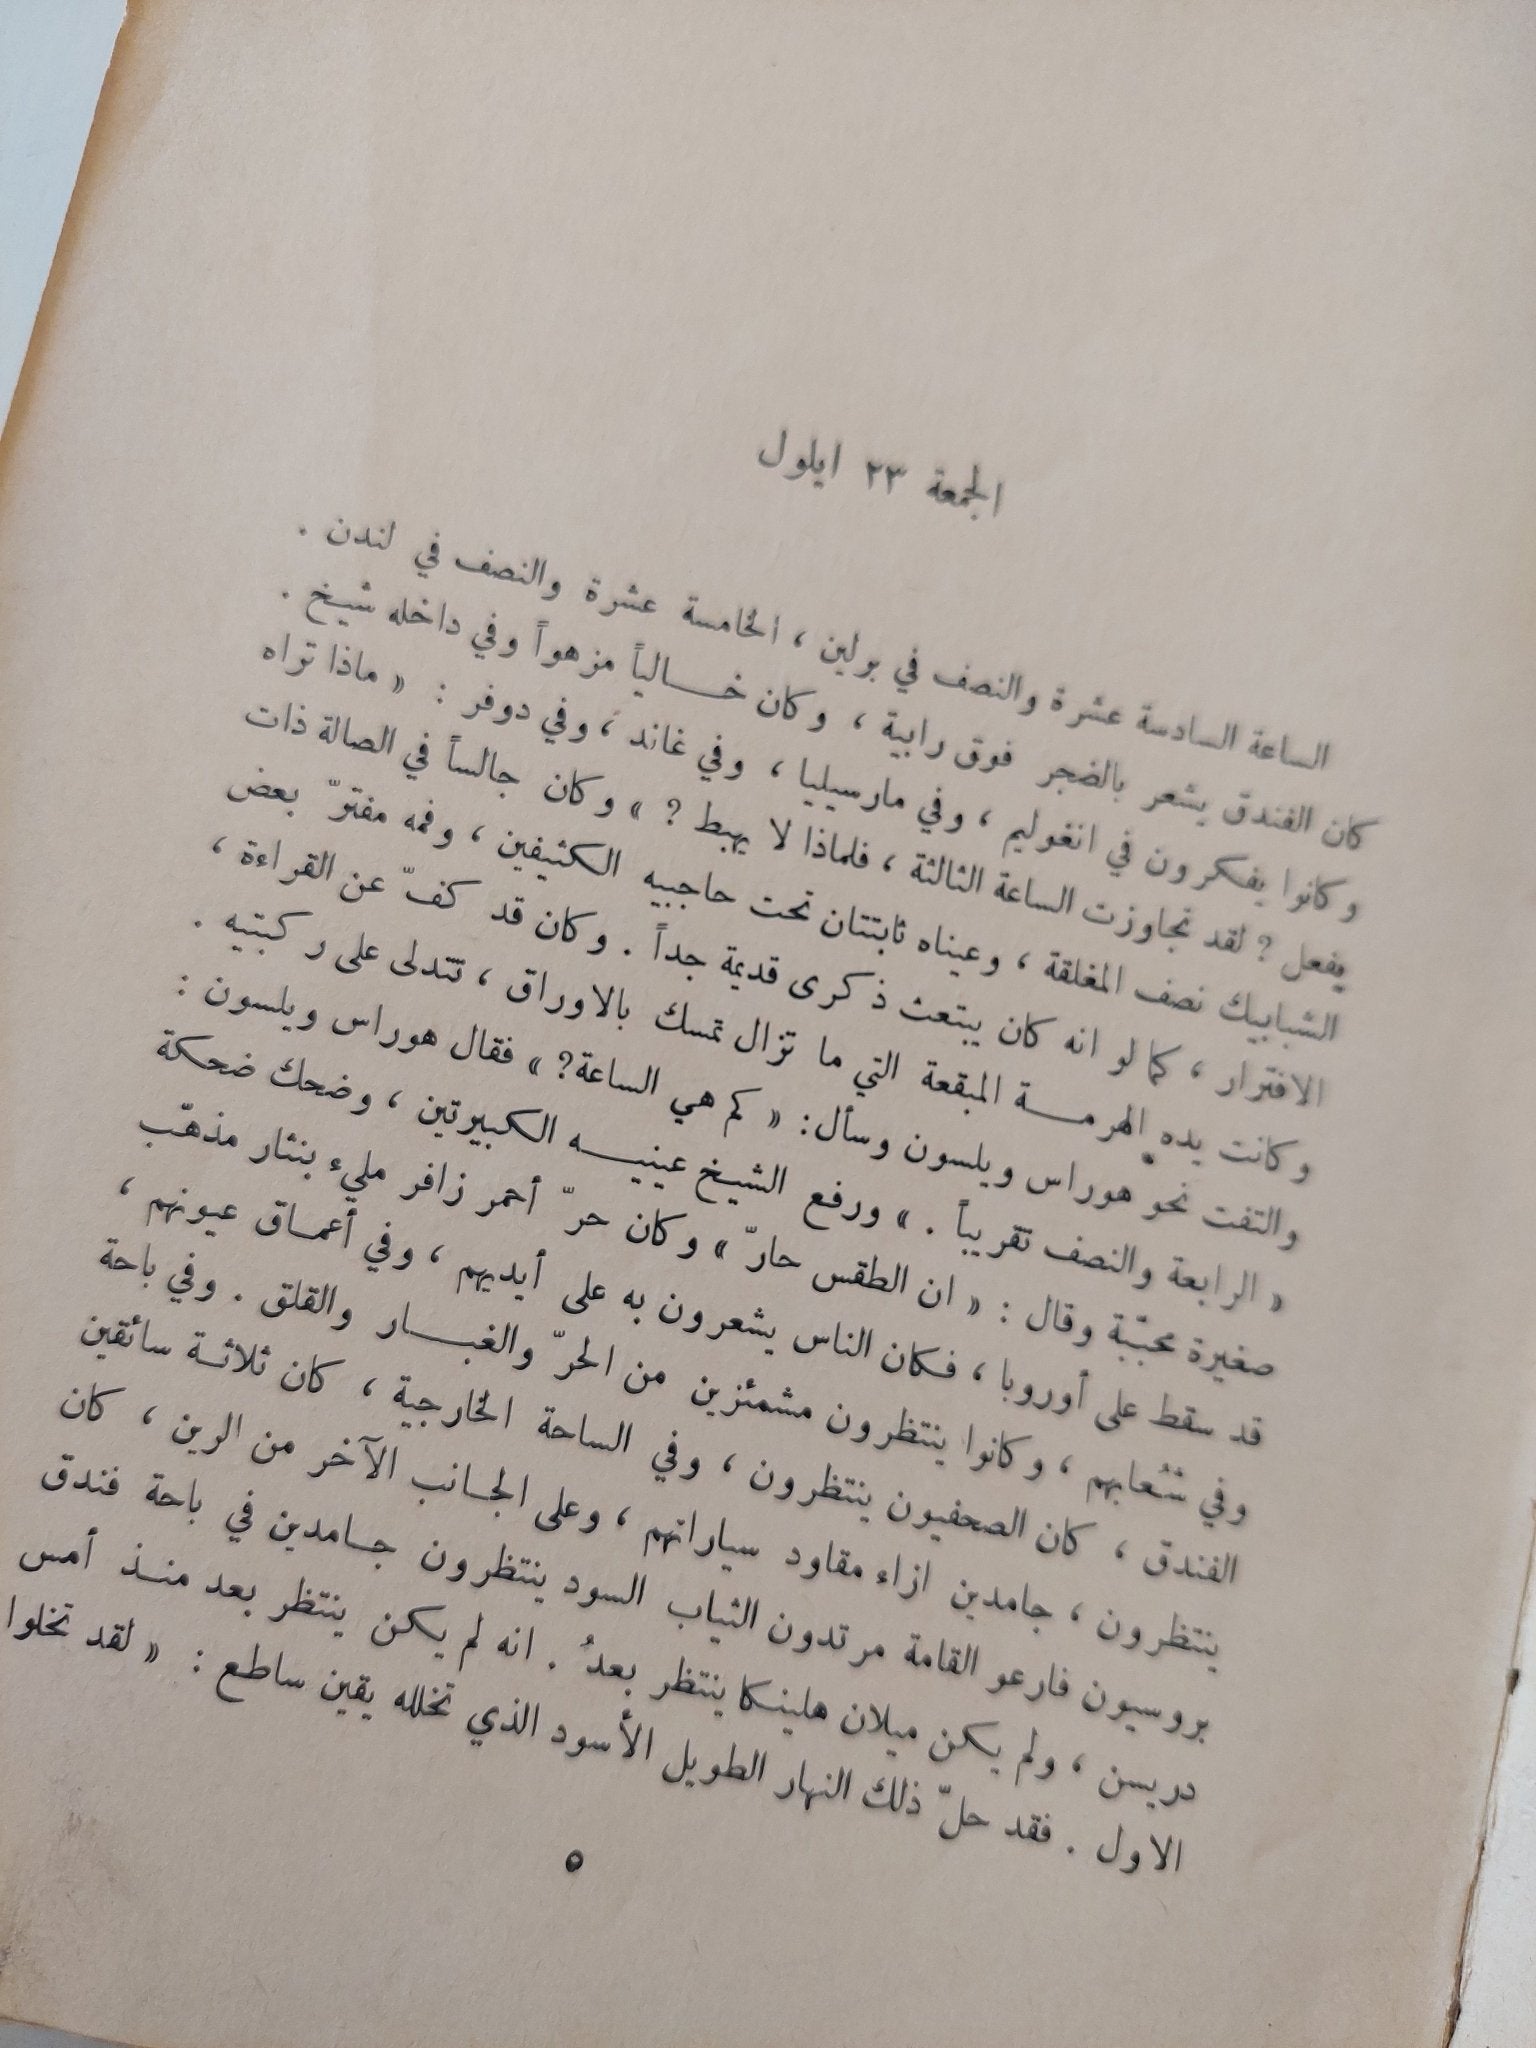 الجمعة ٢٣ ايلول
الساعة السادسة عشرة والنصف في برلين ، الخامسة عشرة والنصف في لندن .
كان الفندق يشعر بالضجر فوق رابية ، وكان خالياً مزهواً وفي داخله شيخ .
وكانوا يفكرون في انغوليم ، وفي مارسيليا ، وفي غاند ، وفي دوفر : « ماذا تراه
يفعل ? لقد تجاوزت الساعة الثالثة ، فلماذا لا يهبط ? » وكان جالساً في الصالة ذات
الشبابيك نصف المغلقة ، وعيناه ثابتتان تحت حاجبيه الكثيفين ، وفمه مفترّ بعض
الافترار ، كما لو انه كان يبتعث ذكرى قديمة جداً . وكان قد كفّ عن القراءة ،
وكانت يده الهرمة المبقعة التي ما تزال تمسك بالاوراق ، تتدلى على ركبتيه .
والتفت نحو هوراس ويلسون وسأل: « كم هي الساعة? » فقال هوراس ويلسون :
« الرابعة والنصف تقريباً . » ورفع الشيخ عينيه الكبيرتين ، وضحك ضحكة
صغيرة محبّبة وقال : « ان الطقس حارّ » وكان حرّ أحمر زافر مليء بنثار مذهّب
قد سقط على أوروبا ، فكان الناس يشعرون به على أيديهم ، وفي أعماق عيونهم ،
وفي شُعابهم ، وكانوا ينتظرون مشمئزين من الحرّ والغبار والقلق . وفي باحة
الفندق ، كان الصحفيون ينتظرون ، وفي الساحة الخارجية ، كان ثلاثة سائقين
ينتظرون ، جامدين ازاء مقاود سياراتهم ، وعلى الجانب الآخر من الرين ، كان
بروسيون فارعو القامة مرتدون الثياب السود ينتظرون جامدين في باحة فندق
دريسن ، ولم يكن ميلان هلينكا ينتظر بعدُ . انه لم يكن ينتظر بعد منذ أمس
الاول . فقد حلّ ذلك النهار الطويل الأسود الذي تخلله يقين ساطع : « لقد تخلوا
٥